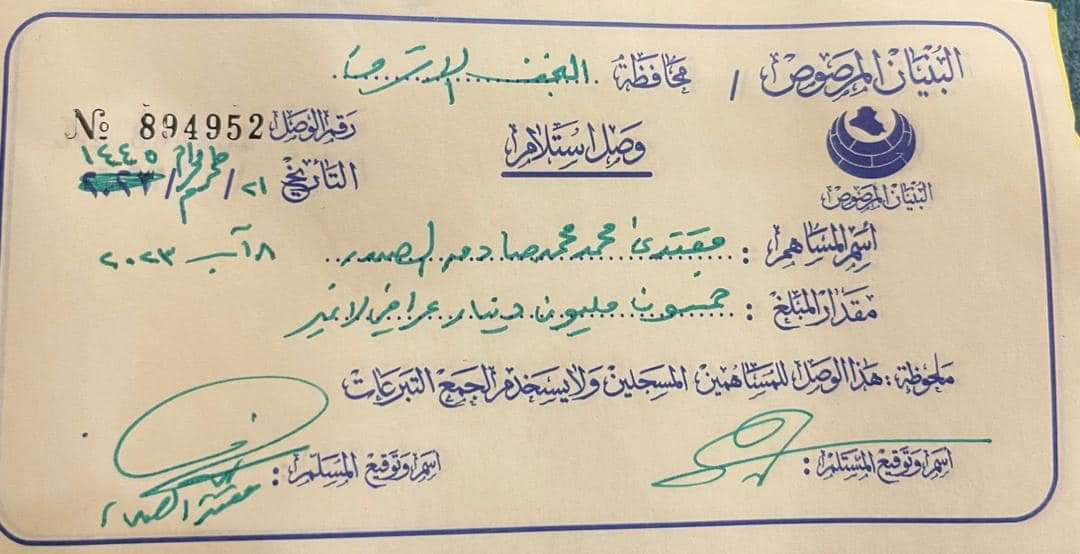 البنيان المرصوص / محافظة النجف الاشرف
رقم الوصل 894952 №
وصل استلام
التأريخ ٢١ / محرم الحرام / ١٤٤٥
البنيان المرصوص
اسم المساهم : مقتدى محمد محمد صادق الصدر ٨ آب ٢٠٢٣
مقدار المبلغ : خمسون مليون دينار عراقي لا غير
ملحوظة : هذا الوصل للمساهمين المسجلين ولا يستخدم لجمع التبرعات
اسم وتوقيع المستلم :
اسم وتوقيع المسلم : مقتدى الصدر